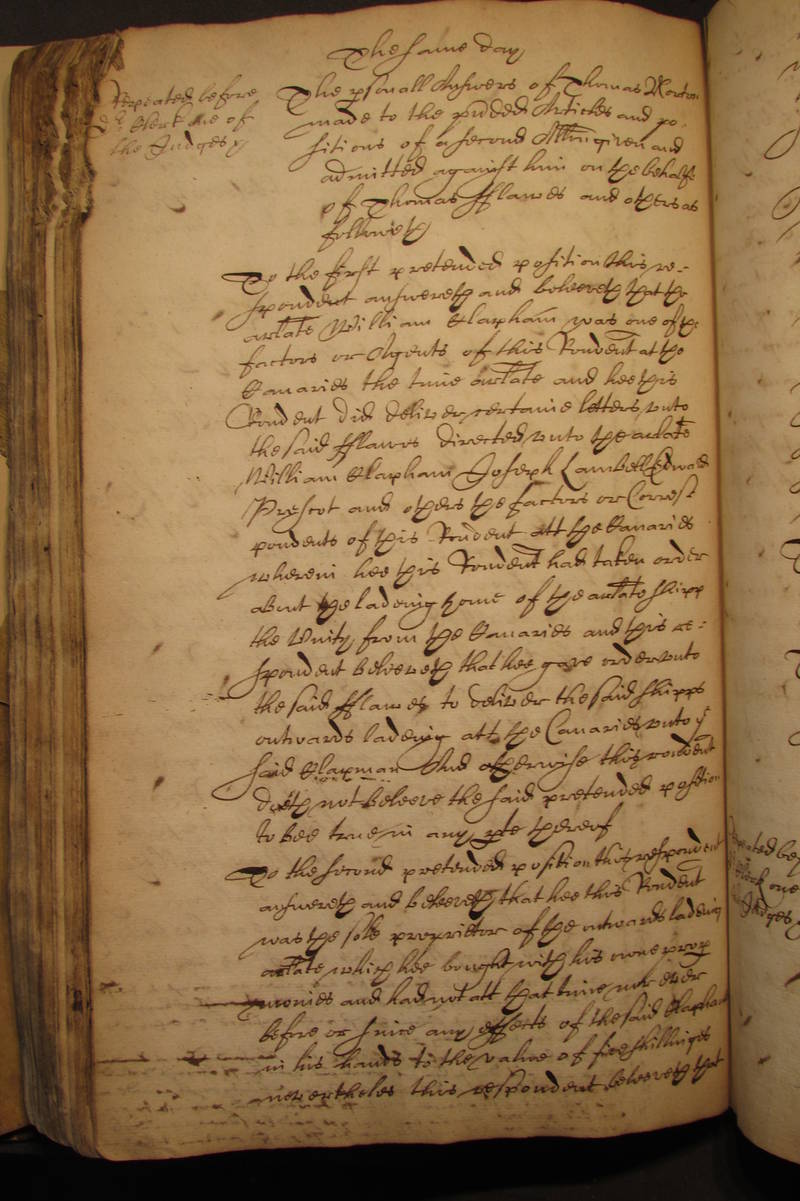 The same day
Repeated before
dr. Clerk one of
the Judges
The p'sonall Answers of Thomas Norton
made to the p'tded Articles and po-
sitions of a second Allon given and
admitted against him on the behalfe
of Thomas fflawes and others as
followeth
To the first pretended position this re-
spondent answereth and beleeveth that the
arlate William Clapham was one of the
factors or Agents of this Rondent at the
Canaries the time arlate and hee this
Rondent did deliver certaine letters vnto
the said fflawes directed vnto the arlate
William Clapham Joseph Lambell Edward
Prescot and others the factors or Corresp
pondents of this Rondent att the Canaries
wherein hee this Rondent had taken order
about the ladeing home of the arlate shipp
the Vnity from the Canaries and this re-
spondent beleeveth that hee gave order vnto
the said fflawes to deliver the said shipps
outwards ladeing att the Canaries vnto ye
said Clapman And otherwise this rondent
doeth not beleeve the said pretended position
to bee true in any p'te thereof
To the second pretended position this respondent
answereth and beleeveth that hee this Rondent
was the sole proprietor of the outwards ladeing
arlate which hee bought with his owne prop
monies and had not att that time nor ever
before or since any effects of the said Clapham
in his hands to the value of five shillings
nevertheles this respondent beleeveth that